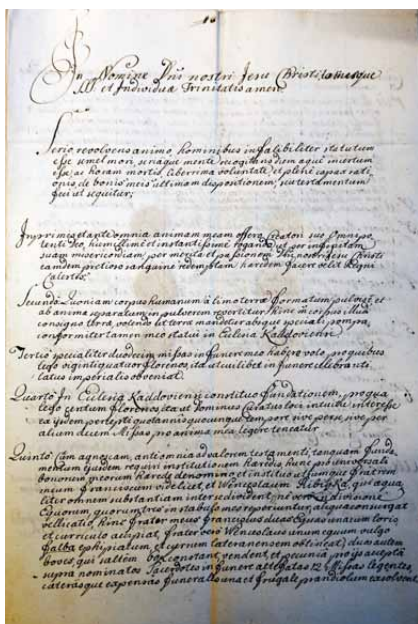 In Nomine Dni nostri Jesu Christi,
et Individua Trinitatis amen
Serio revolvens animo, hominibus infalibiliter statutum
esse semel mori, mente recogitans diem
ac horam mortis, liberrima voluntate, et plene capax rati
onis, de bonis meis ultimam dispositionem, seu testamentum
feci ut sequitur;
Imprimis et ante omnia animam meam offero Creatori suo Omnipo
tenti Deo, humillime et instantissime rogando, ut per infinitam
suam misericordiam, per merita et passionem Dni nostri Jesu Christi
eandem pretioso sanguine redemptam haredem facere velit Regni
Caelestis.
Secundo Quoniam corpus humanum à limo terra formatum pulvis est, et
ab anima separatum in pulverem revertitur, hinc m corpus illud
consigno terra, volendo ut terra mandetur absque speciali pompa,
conformiter tamen meo statui in Ecclesia Kaddoviensi
Tertio specialiter duodecim missas in funere meo habere volo, pro quibus
lego viginti quatuor florenos, ita ut cuilibet in funere celebranti
imperialis obveniat.
Quarto In Ecclesia Kaddoviensi constituo fundationem, pro qua
lego centum florenos, ita ut Dominus Curatus loci intuitu interesse
ejusdem percepti quotannis quocunque tempore sive per se, sive per
alium decem Missas pro anima mea legere teneatur
Quinto Cum agnoscam, ad valorem testamenti, tanquam funda
mentum ejusdem requiri institutionem haredis, hinc
bonorum meorum Haredes denomino et instituo fratrem
meum Franciscum et Wenceslaum qui aqua
liter omnem substantiam inter se divident, ne vero in divisione
Equorum, quorum tres in stabulo meo reperiuntur, aliqua consurgat
hinc frater meus Franciscus duas Equas una cum loris
et curriculo accipiat, frater vero Wenceslaus unum equum vulgo
et currum obtineat, duos autem
boves, qui saltem constant, vendent, et pecunia pro ijs accepta
supra nominatos Sacerdotes in funere allegatas 12 Missas legentes,
caterasque expensas funerales una et frugale prandiolum exsolvent